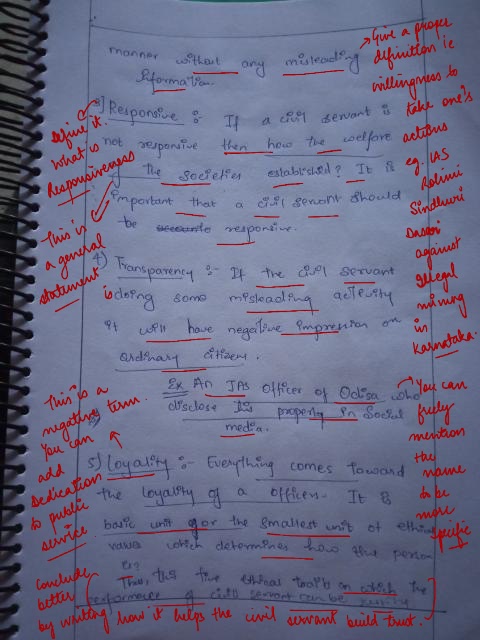 manner without any misleading
Information.
Responsive :- If a civil servant is
not responsive then how the welfare
of the societies established? It is
important that a civil servant should
be responsive.
4) Transparency :- If the civil servant
is doing some misleading activity
it will have negative impression on
ordinary citizen.
Ex An IAS Officer of Odisa who
disclose his property in social
media.
5) Loyality :- Everything comes toward
the loyality of a officer. It is
basic unit or the smallest unit of
value which determines how the person
is?
Thus, this five ethical in which the
performance of civil servant can be
Define it.
What is
Responsiveness
This is
a general
statement
This is a
negative term.
You can
add
Dedication
to public
service.
Conclude
better
by writing how it helps the civil servant build trust.
Give a proper
definition ie
willingness to
take one's
actions
eg. IAS
Rohini
Sindhuri
Dasari
against
illegal
mining
in
Karnataka.
You can
freely
mention
the
name
to be
more
specific